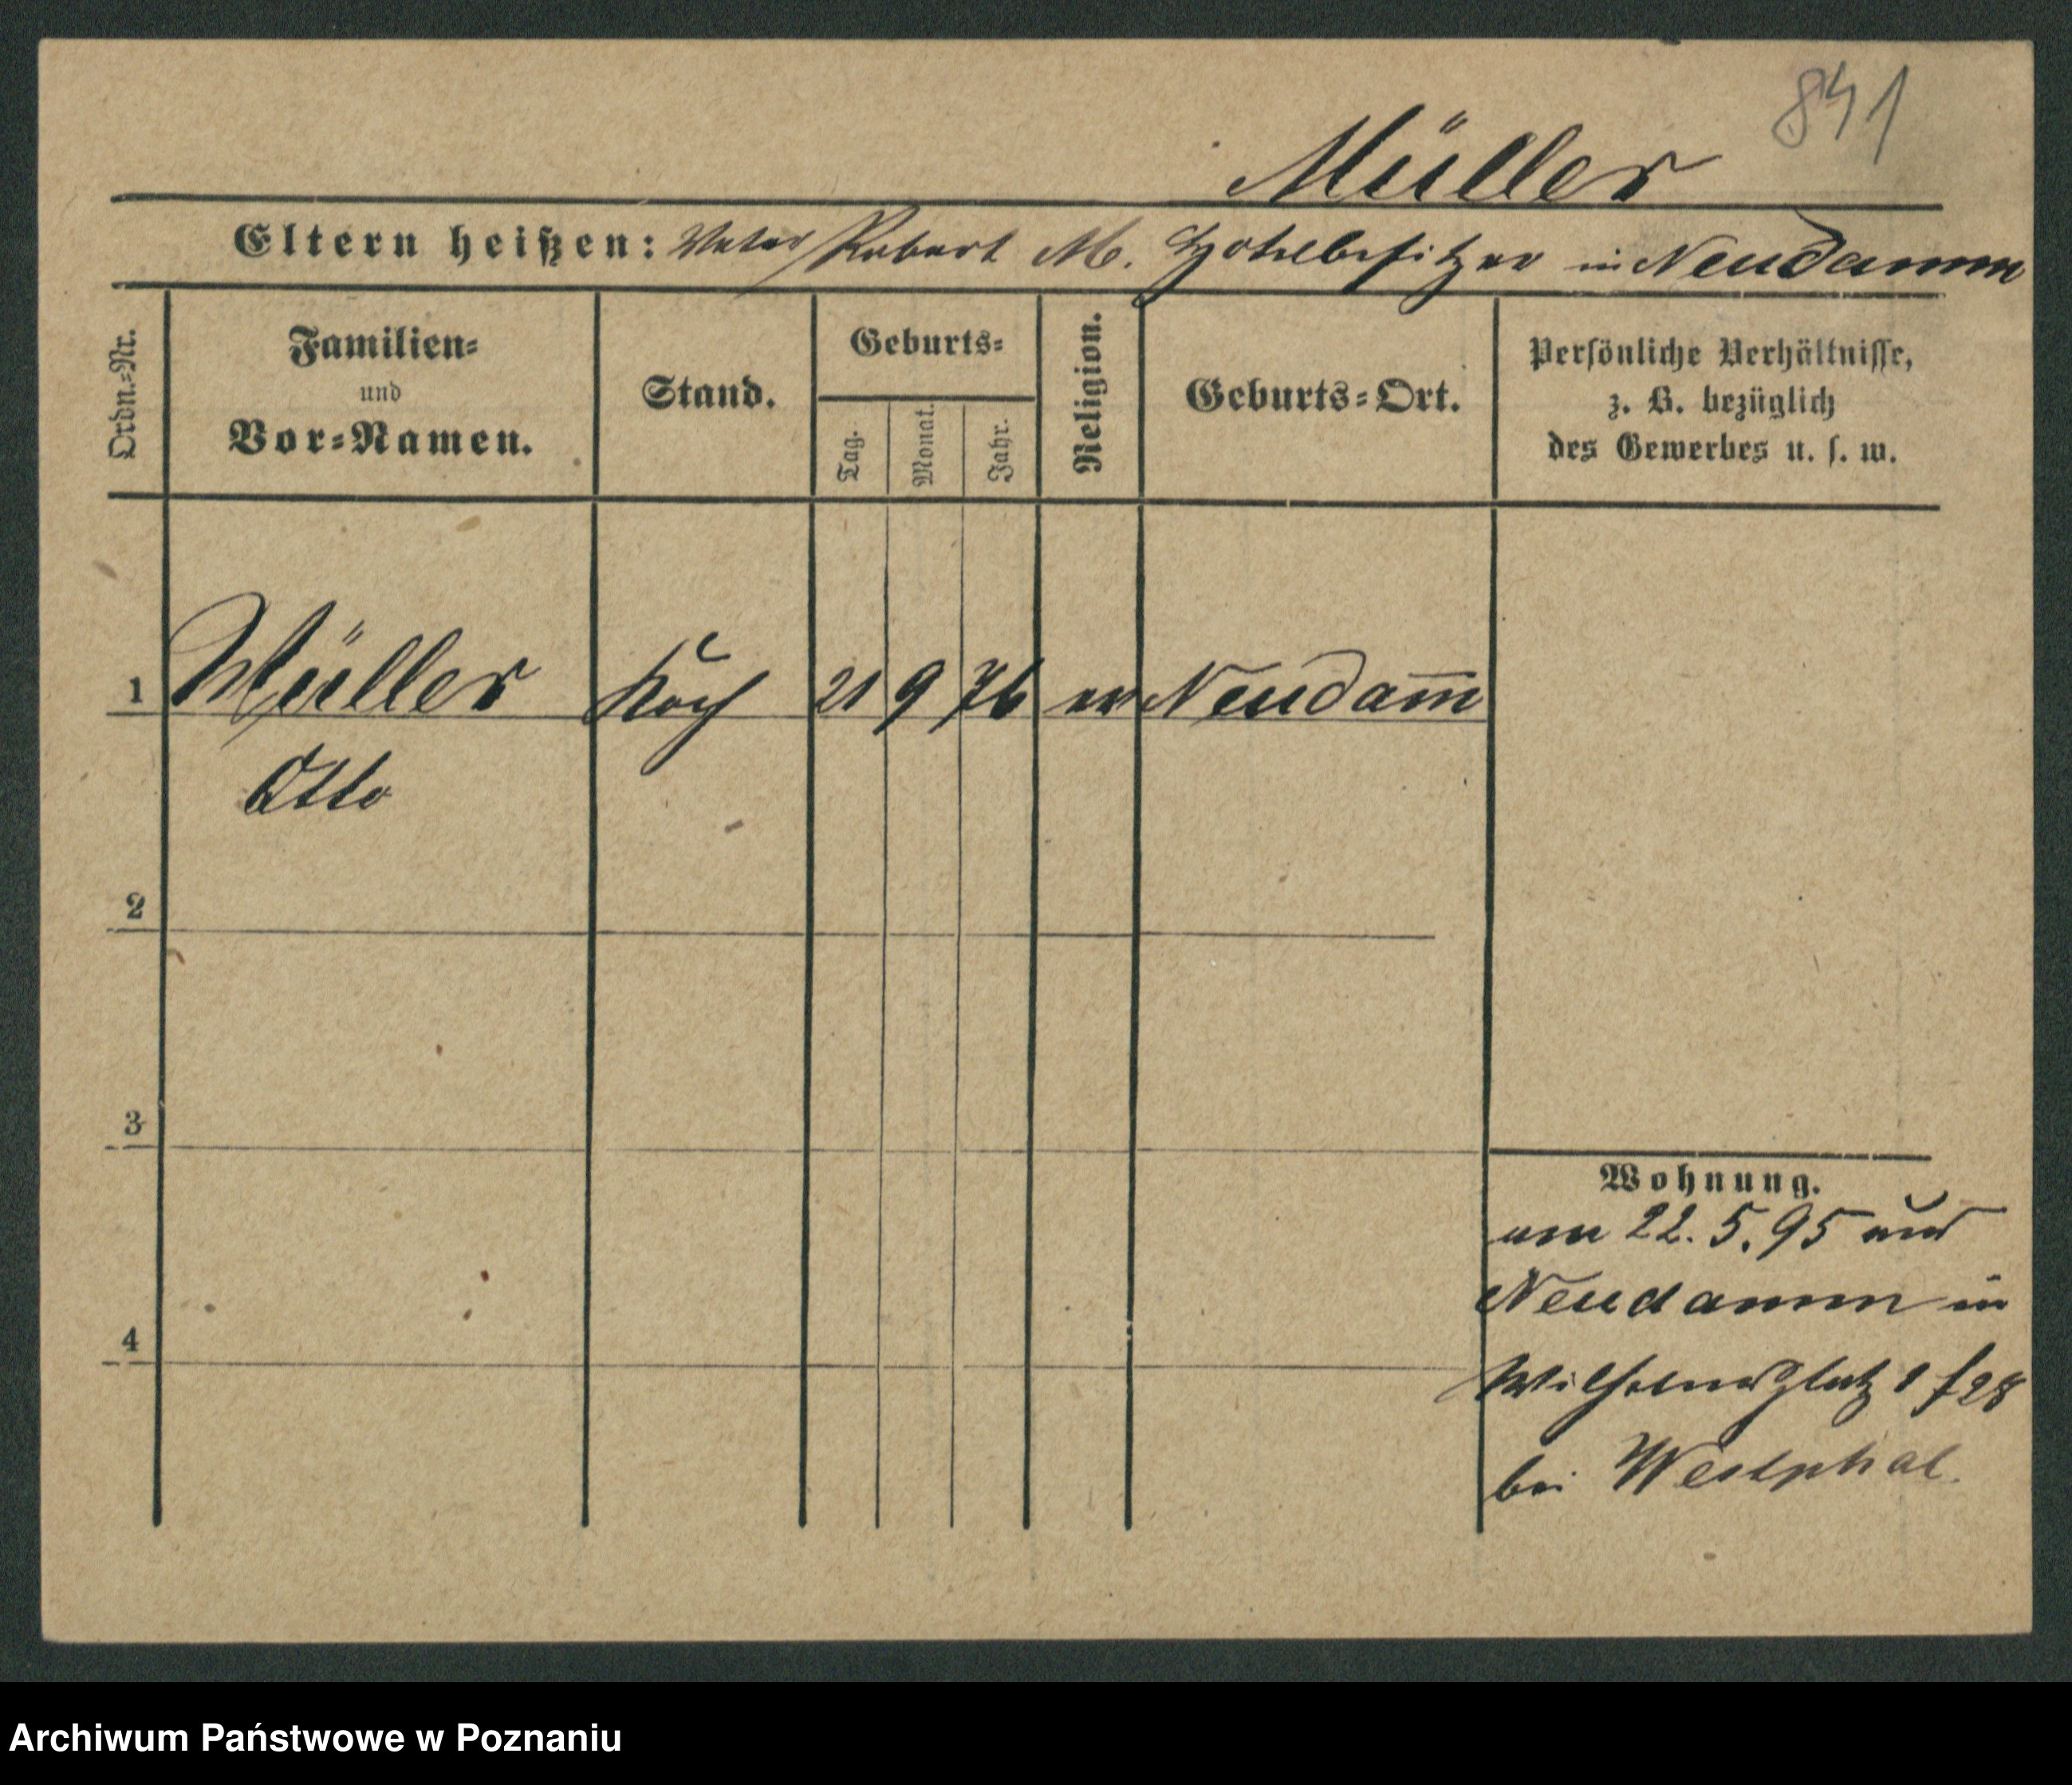 841
Müller
Eltern heißen: Vater Robert M. Hotelbesitzer in Neudamm
Ordn.-Nr.
Familien-
und
Vor-Namen.
Stand.
Geburts-
Tag.
Monat.
Jahr.
Religion.
Geburts-Ort.
Persönliche Verhältnisse,
z. B. bezüglich
des Gewerbes u. s. w.
1 Müller Koch 21 9 76 ev Neudam̅
Otto
2
3
4
Wohnung.
am 22. 5. 95 aus
Neudamm in
Wilhelmsplatz 1
bei Westphal.
Archiwum Państwowe w Poznaniu